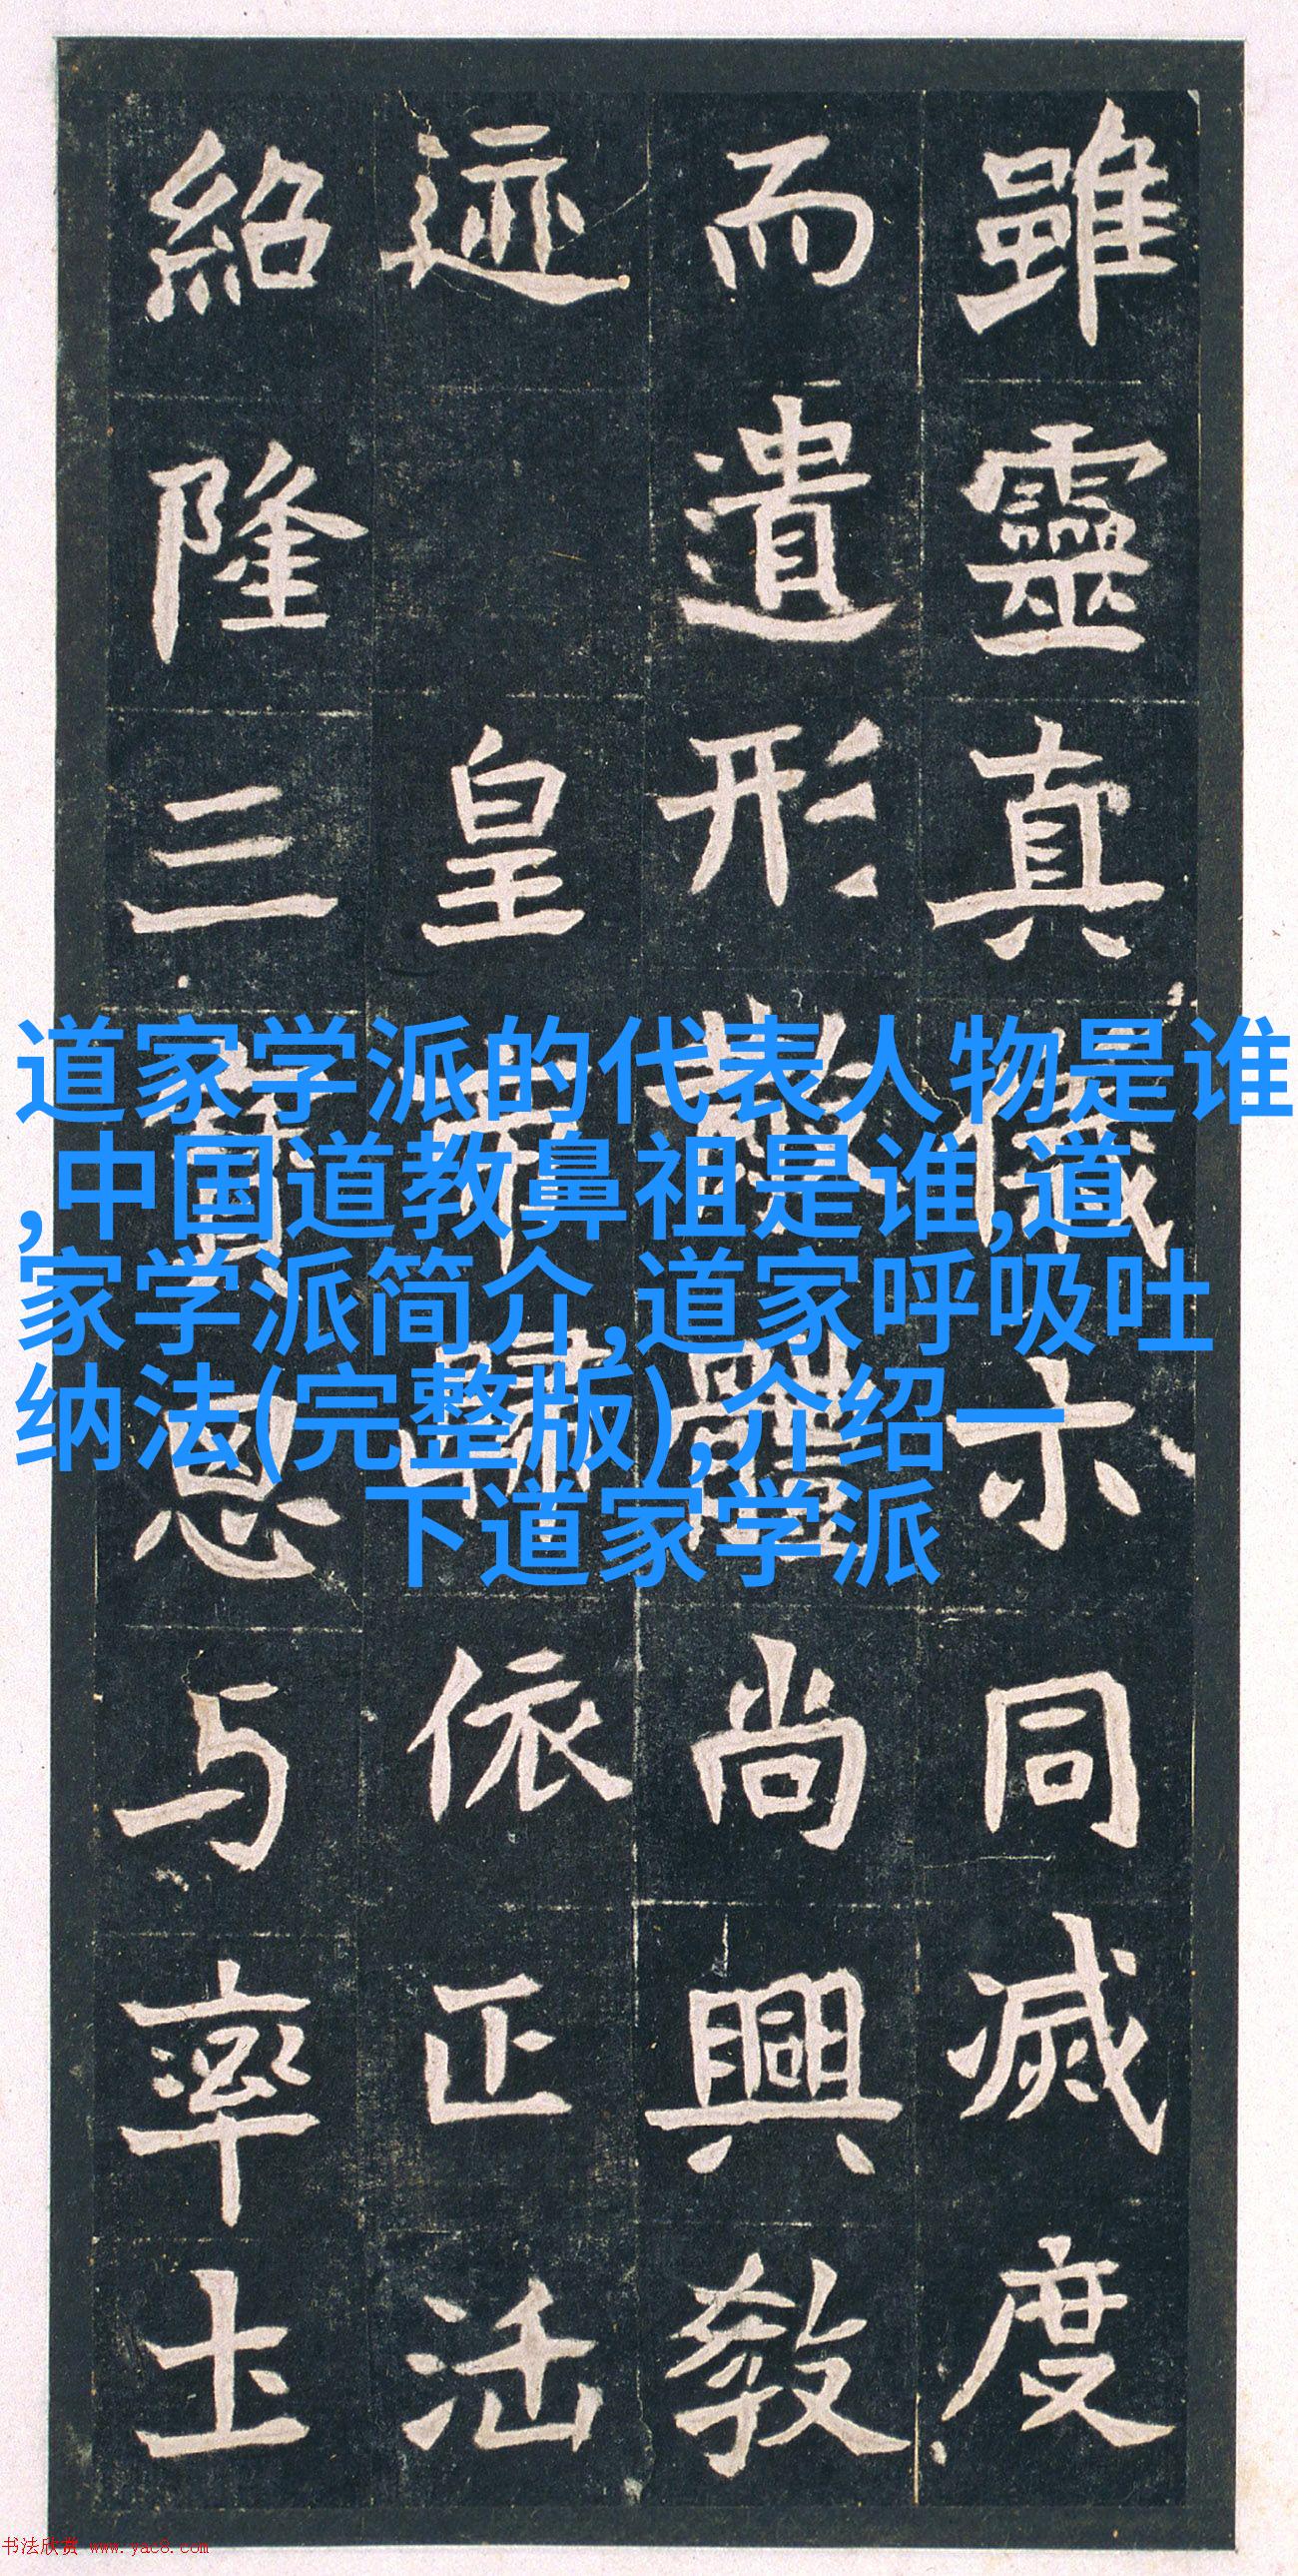 雖靈真儀示同滅度
而遺形散體尚興教
迹 皇帝歸依正法
紹隆三寶思与率土
道家学派的代表人物是谁
,中国道教鼻祖是谁,道
家学派简介,道家呼吸吐
纳法(完整版),介绍一
下道家学派
书法欣赏 www.yac8.com